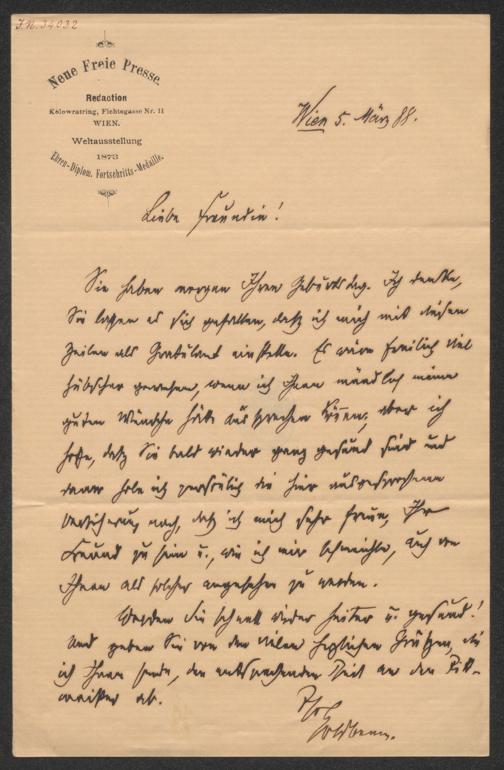 J.N. 34032
Neue Freie Presse.
Redaction
Kolowratring, Fichtegasse Nr. 11
WIEN.
Weltausstellung
1873
Ehren-Diplom. Fortschritts-Medaille.
Wien 5. März 88.
Liebe Freundin!
Sie haben morgen Ihren Geburtstag. Ich denke,
Sie lassen es sich gefallen, daß ich mich mit diesen
Zeilen als Gratulant einstelle. Es wäre freilich viel
hübscher gewesen, wenn ich Ihnen mündlich meine
guten Wünsche hätte aussprechen können, aber ich
hoffe, daß Sie bald wieder ganz gesund sind und
dann hole ich persönlich die hier ausgesprochene
Versicherung nach, daß ich mich sehr freue, Ihr
Freund zu sein u., wie ich mir schmeichle, auch von
Ihnen als solcher angesehen zu werden.
Werden Sie schnell wieder heiter u. gesund!
Und geben Sie von den vielen herzlichen Grüßen, die
ich Ihnen sende, den entsprechenden Theil an den
ab.
Goldbaum.